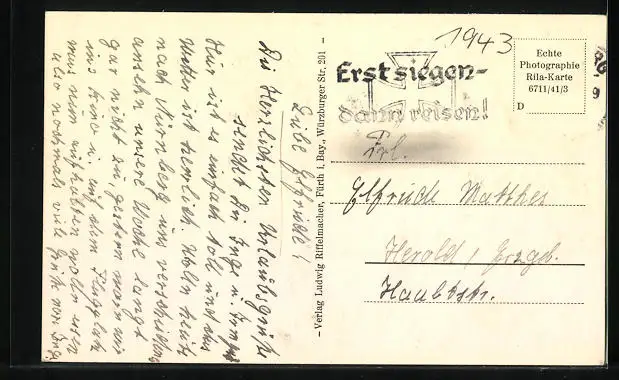 1943
Erst siegen-
dann reisen!
Echte
Photographie
Rila-Karte
6711/41/3
D
Frl.
Elfriede Matthes
Herold / Erzgeb.
Hauptstr.
– Verlag Ludwig Riffelmacher, Fürth i. Bay., Würzburger Str. 201 –
Liebe Elfriede!
Die herzlichsten Urlaubsgrüße
sendet dir Inge u.
Hier ist es einfach toll und das
Wetter ist herrlich. Wolln heute
nach Nürnberg uns verschiedenes
ansehn unsere Woche langt
gar nicht zu, gestern waren wir
ins Kino u. auf dem
mus nun aufhören wolln essen
also nochmals viele Grüße von Inge